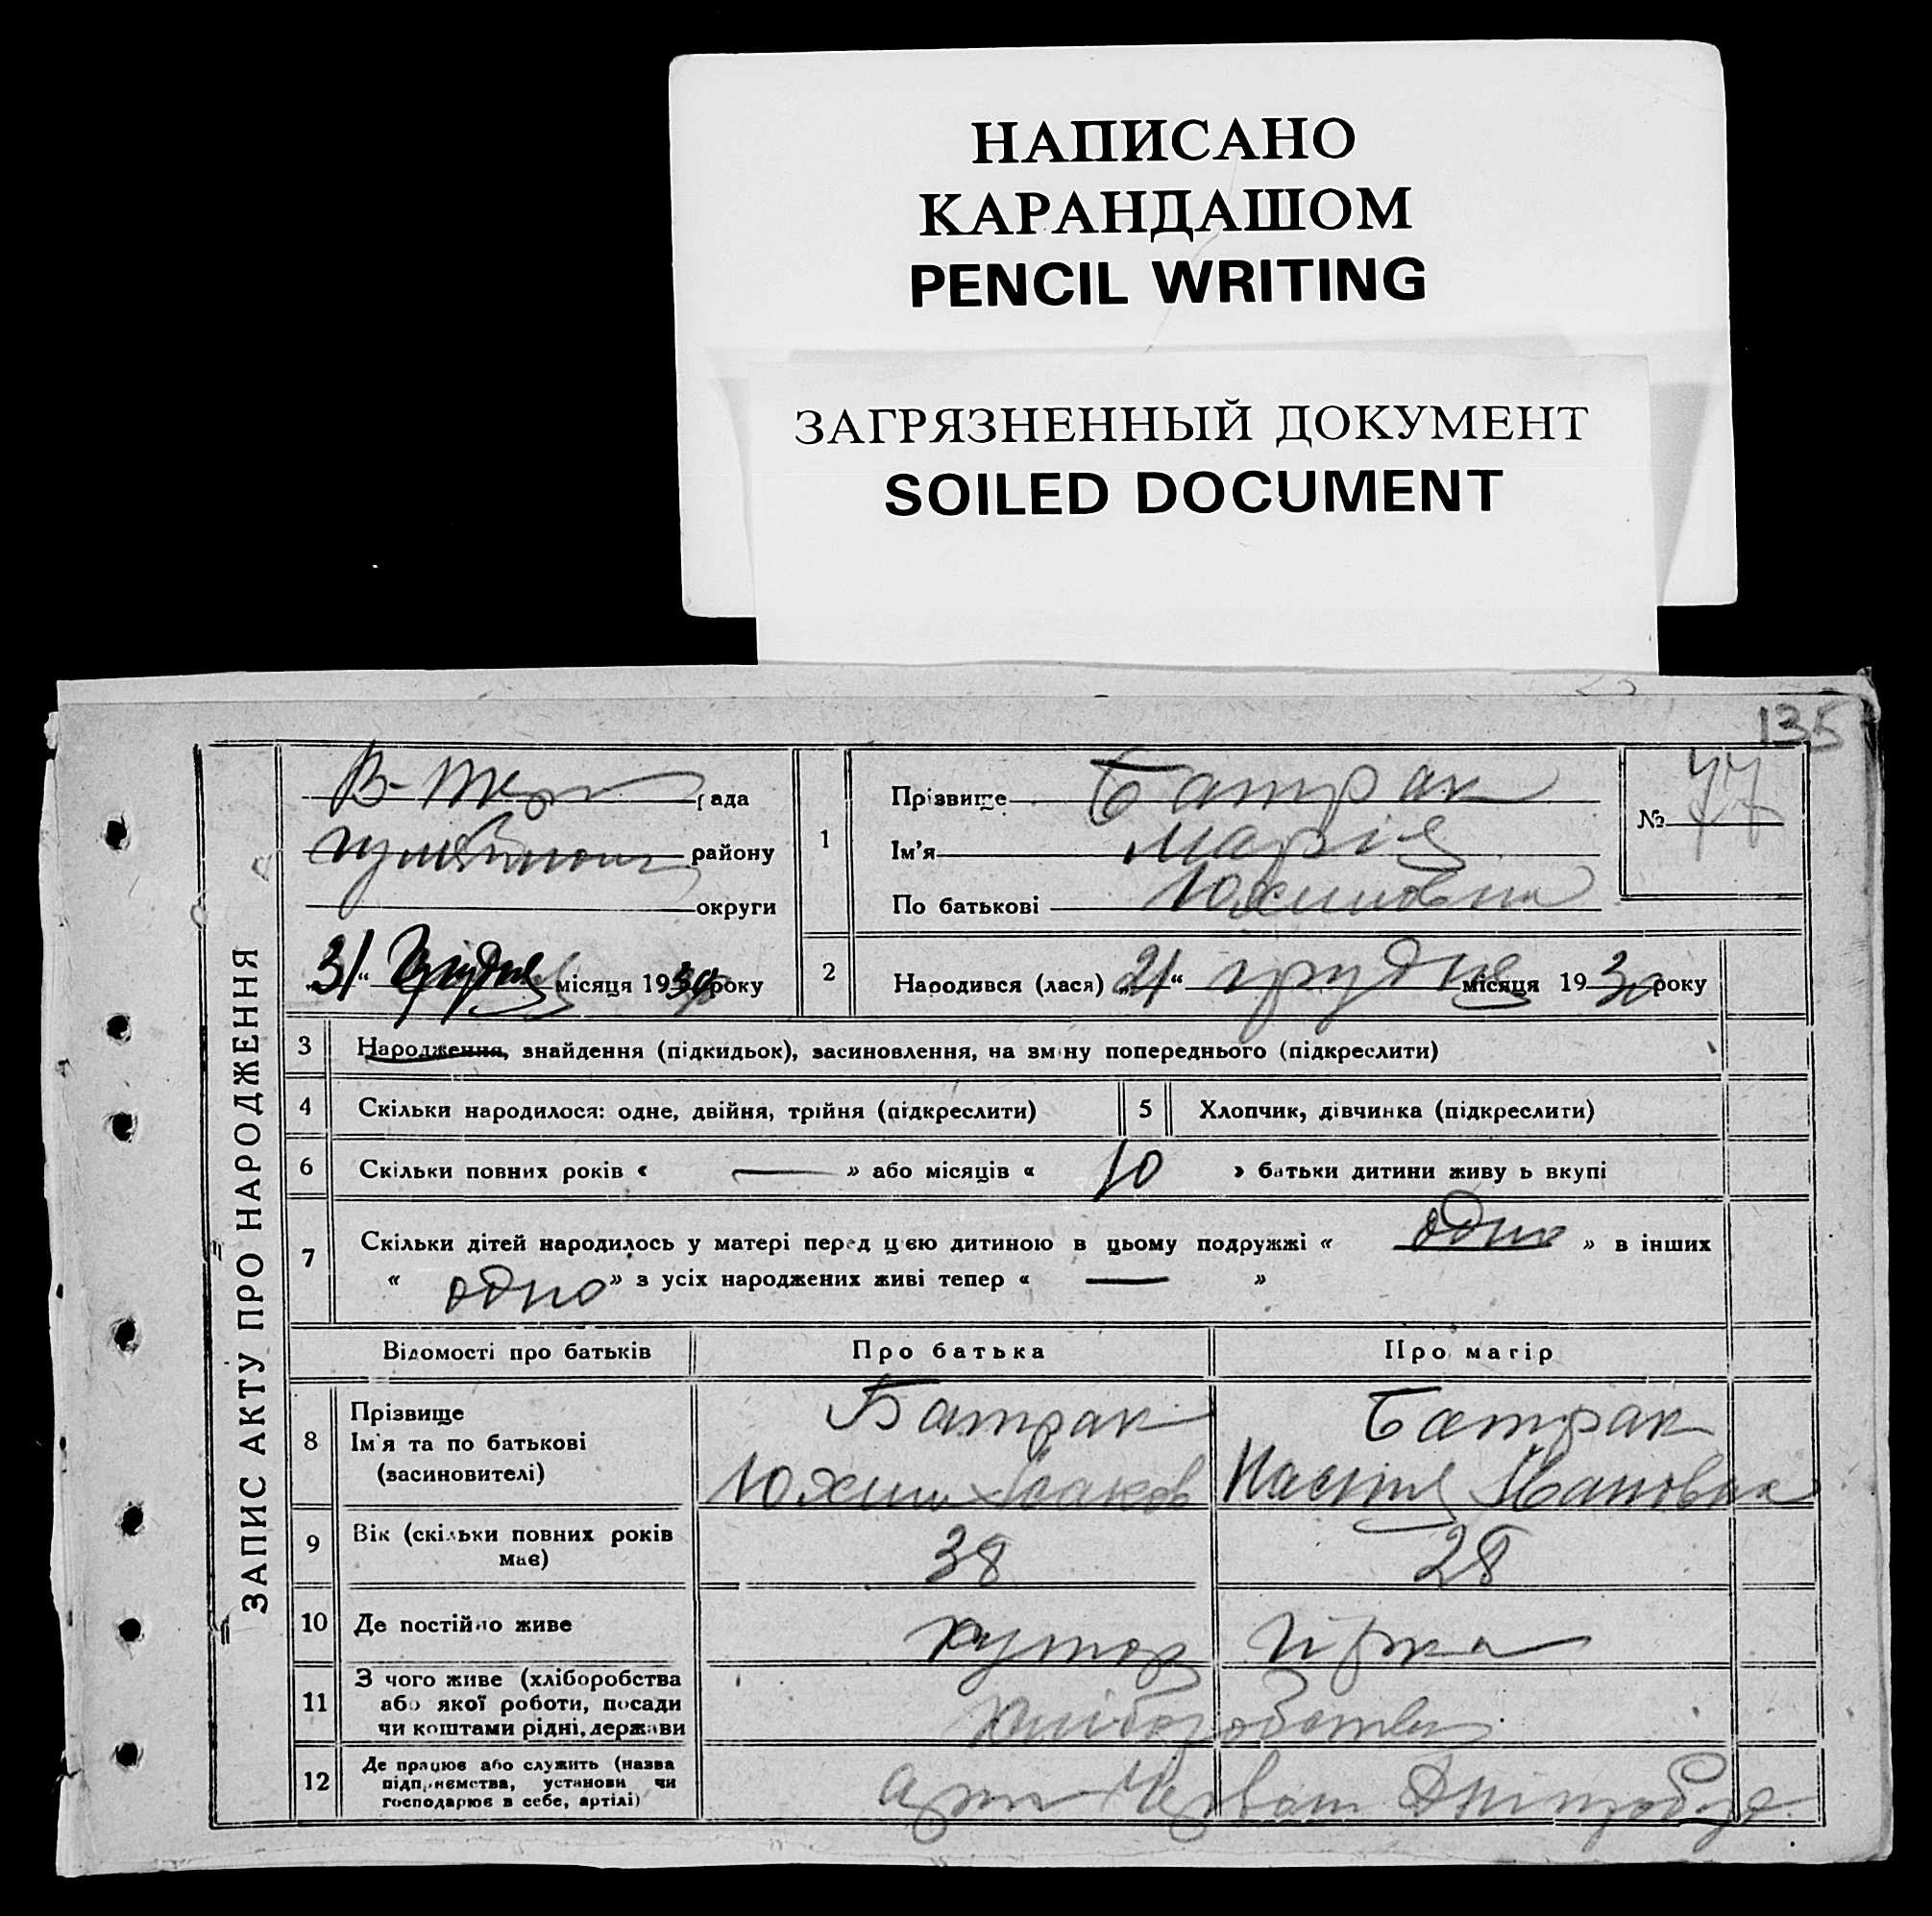 НАПИСАНО
КАРАНДАШОМ
PENCIL WRITING
ЗАГРЯЗНЕННЫЙ ДОКУМЕНТ
SOILED DOCUMENT
135
ЗАПИС АКТУ ПРО НАРОДЖЕННЯ
рада
району
округи
31 “ Грудня місяця 1930 року
1
Прізвище Батрак
Ім'я Марія
По батькові Юхимовна
№ 77
2
Народився (лася) „21“ грудня місяця 1930 року
3 Народження, знайдення (підкидьок), засиновлення, на зміну попереднього (підкреслити)
4 Скільки народилося: одне, двійня, трійня (підкреслити) 5 Хлопчик, дівчинка (підкреслити)
6 Скільки повних років « — » або місяців « 10 » батьки дитини живуть вкупі
7 Скільки дітей народилось у матері перед цією дитиною в цьому подружжі « одно » в інших
« одно » з усіх народжених живі тепер « — »
Відомості про батьків Про батька Про матір
8 Прізвище
Ім'я та по батькові
(засиновителі)
Батрак
Юхим Ісаков
Батрак
Настя Ивановна
9 Вік (скільки повних років
має)
38 28
10 Де постійно живе хутор Гірка
11 З чого живе (хліборобства
або якої роботи, посади
чи коштами рідні, держави
Хліборобства
12 Де працює або служить (назва
підприємства, установи чи
господарює в себе, артілі)